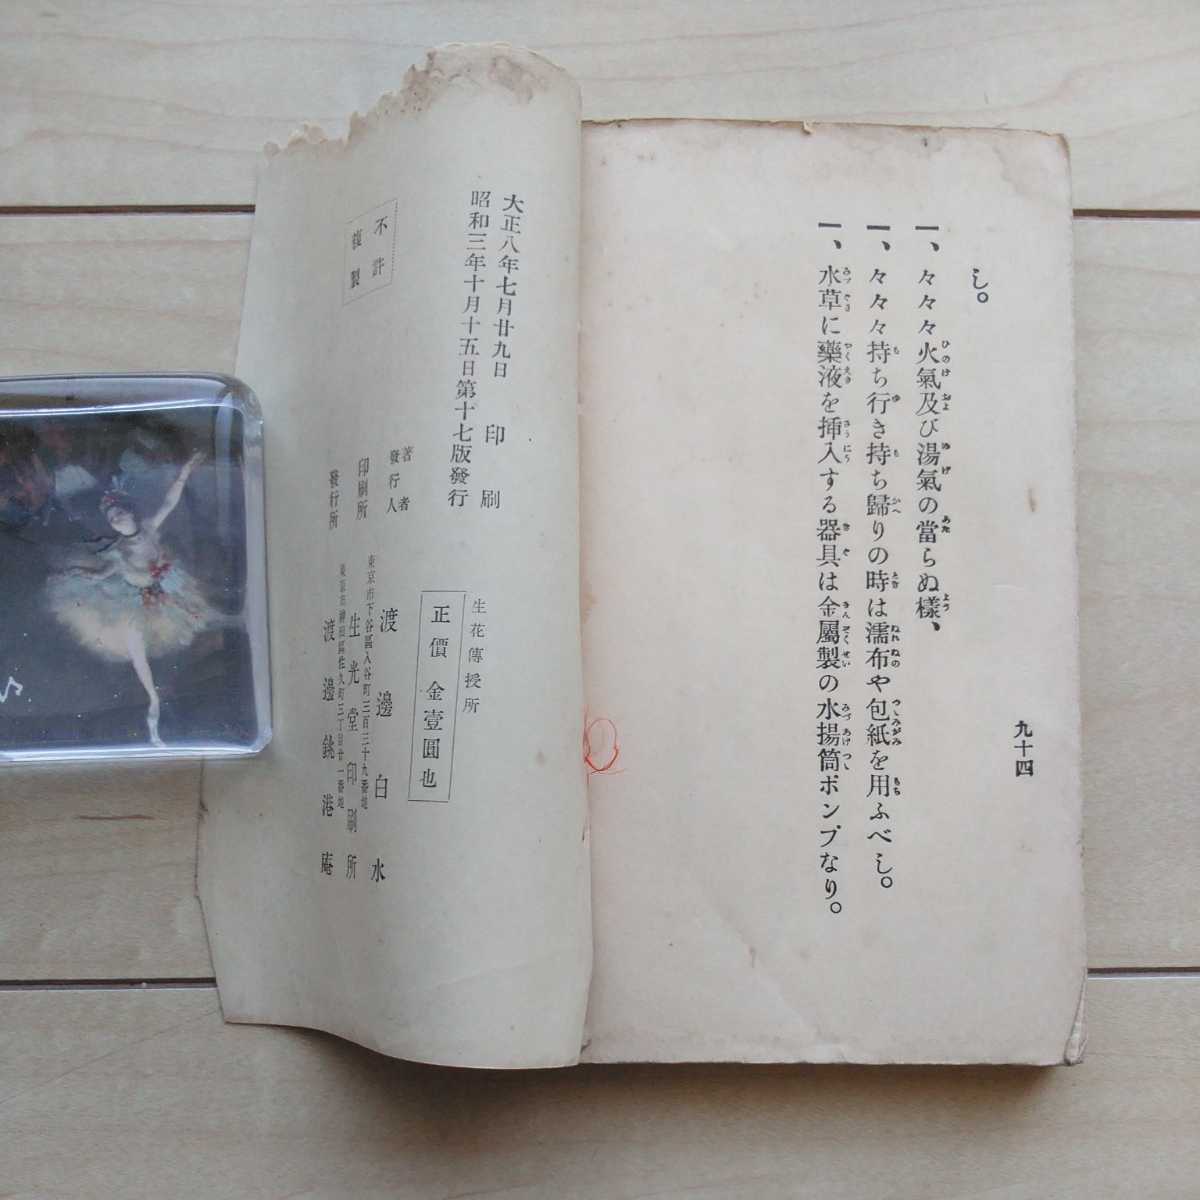 し。
一、々々々火氣及び湯氣の當らぬ樣、
一、々々々持ち行き持ち歸りの時は濡布や包紙を用ふべし。
一、水草に藥液を挿入する器具は金屬製の水揚筒ポンプなり。
九十四
大正八年七月廿九日印刷
昭和三年十月十五日第十七版發行
不許
複製
生花傳授所
正價金壹圓也
著者
發行人
渡邊白水
東京市下谷區入谷町三百三十九番地
印刷所
生光堂印刷所
東京市神田區佐久町三丁目廿一番地
發行所
渡邊銚港庵